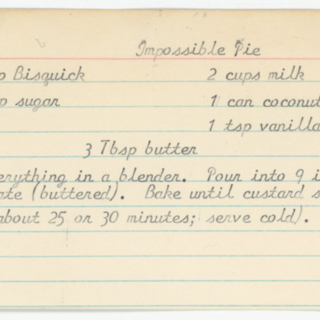 Impossible Pie
p Bisquick 2 cups milk
p sugar 1 can coconut
1 tsp vanilla
3 Tbsp butter
erything in a blender. Pour into 9 i
ate (buttered). Bake until custard s
about 25 or 30 minutes; serve cold).